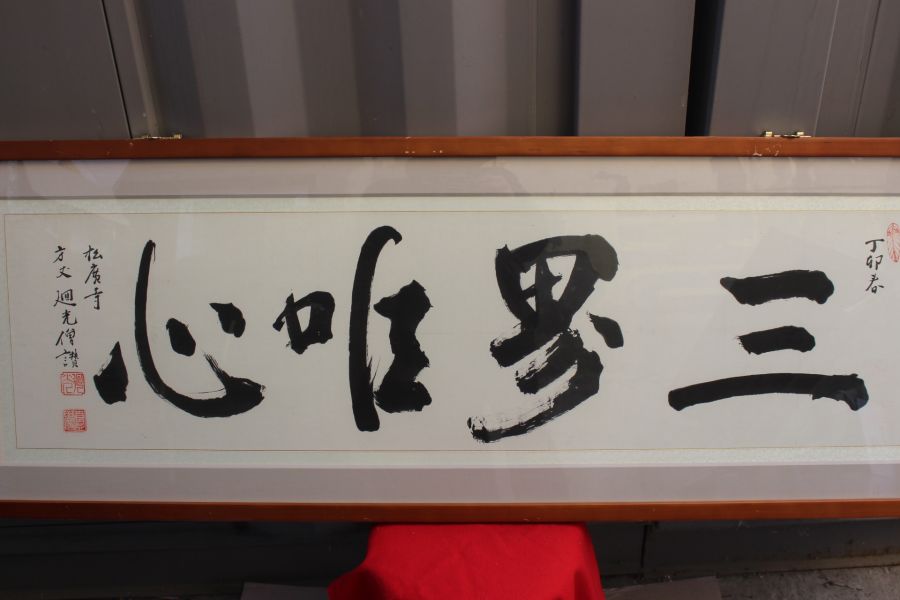 丁卯春
三界唯心
松廣寺
方丈 廻光僧讚